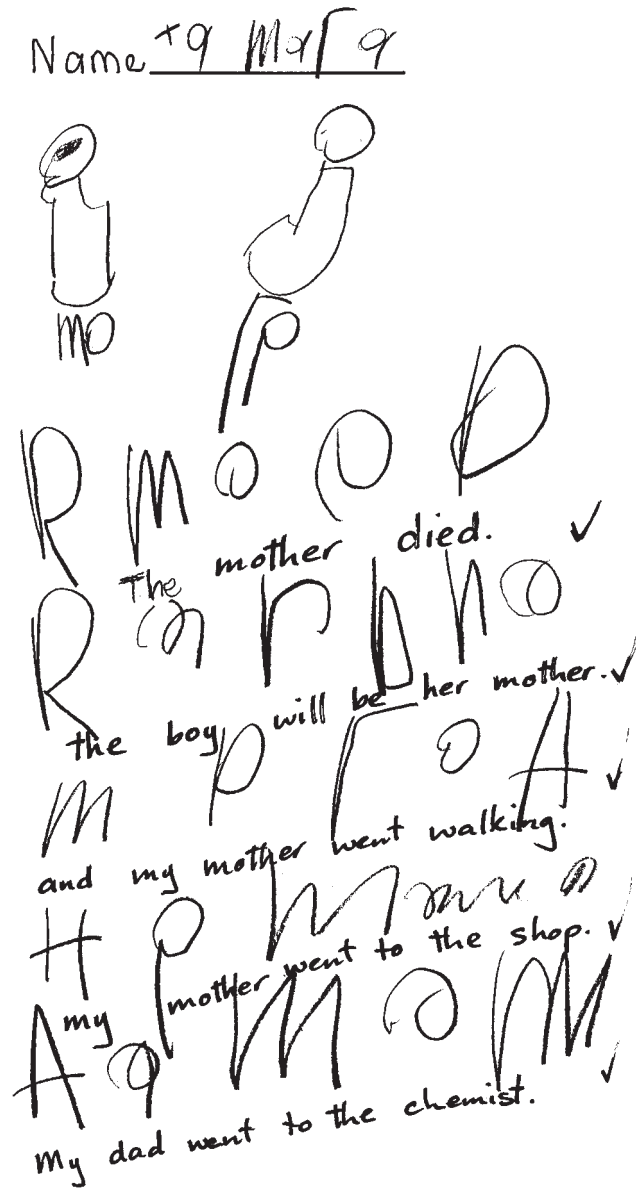 Name +a Mara
mo
P
R m o P D
The mother died.
R a r b h o
the boy will be her mother.
m P r o A
and my mother went walking.
H P
my mother went to the shop.
A a m a M
My dad went to the chemist.